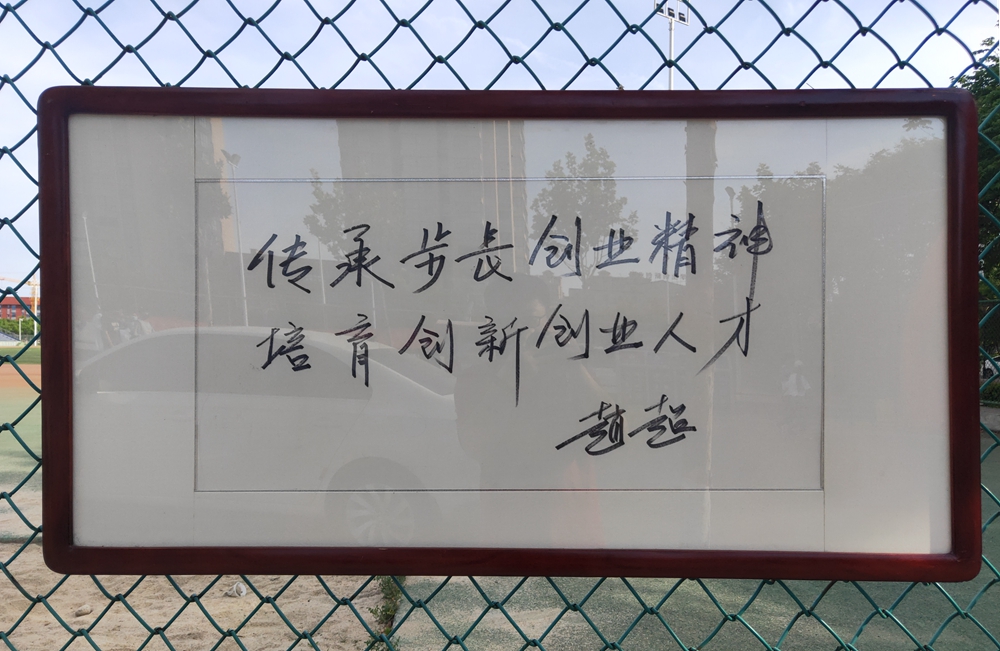 传承步长创业精神
培育创新创业人才
趙超